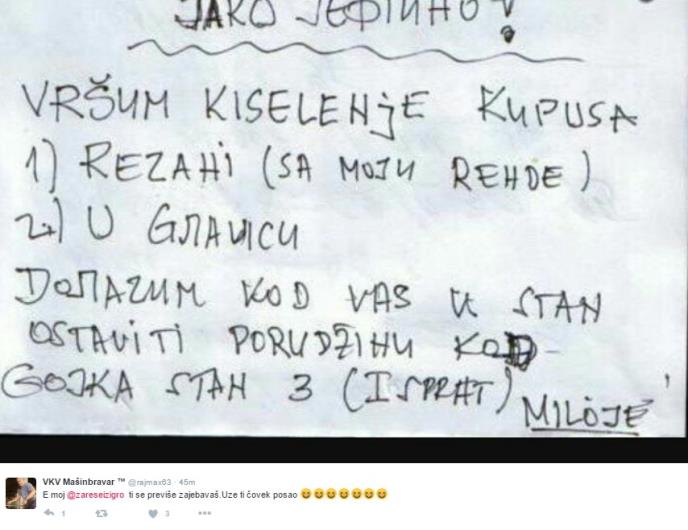 JAKO ЈЕФТИНО!
VRŠUM KISELEHjE KUPUSA
1) REZAHI (SA MOJU REHDE)
2) U GЛAVICU
DOЛAZUM KOD VAS U STAN
OSTAVITI PORUDŽIHU KOD
GOJKA STAH 3 (I SPRAT)
MILOJE
VKV Mašinbravar ™ @rajmax63 · 45m
E moj @zareseizigro ti se previše zajebavaš.Uze ti čovek posao 😄😄😄😄😄😄😄
1 3 •••